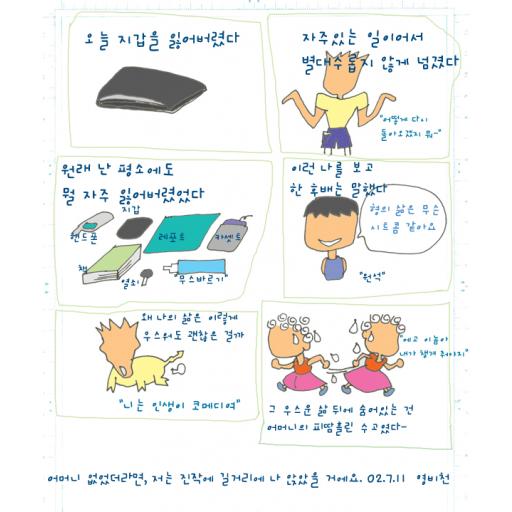 오늘 지갑을 잃어버렸다
자주있는 일이어서
별대수롭지 않게 넘겼다
"어떻게 다시
돌아오겠지 뭐~"
원래 난 평소에도
뭘 자주 잃어버렸었다
지갑
핸드폰
레포트
카셋트
책
열쇠
무스바르기
이런 나를 보고
한 후배는 말했다
형의 삶은 무슨
시트콤 같아요
"원석"
왜 나의 삶은 이렇게
우스워도 괜찮은 걸까
"니는 인생이 코메디여"
"에고 이놈아
내가 챙겨 줘야지"
그 우스운 삶 뒤에 숨어있는 건
어머니의 피땀흘린 수고였다~
어머니 없었더라면, 저는 진작에 길거리에 나 앉았을 거에요. 02.7.11 영비천